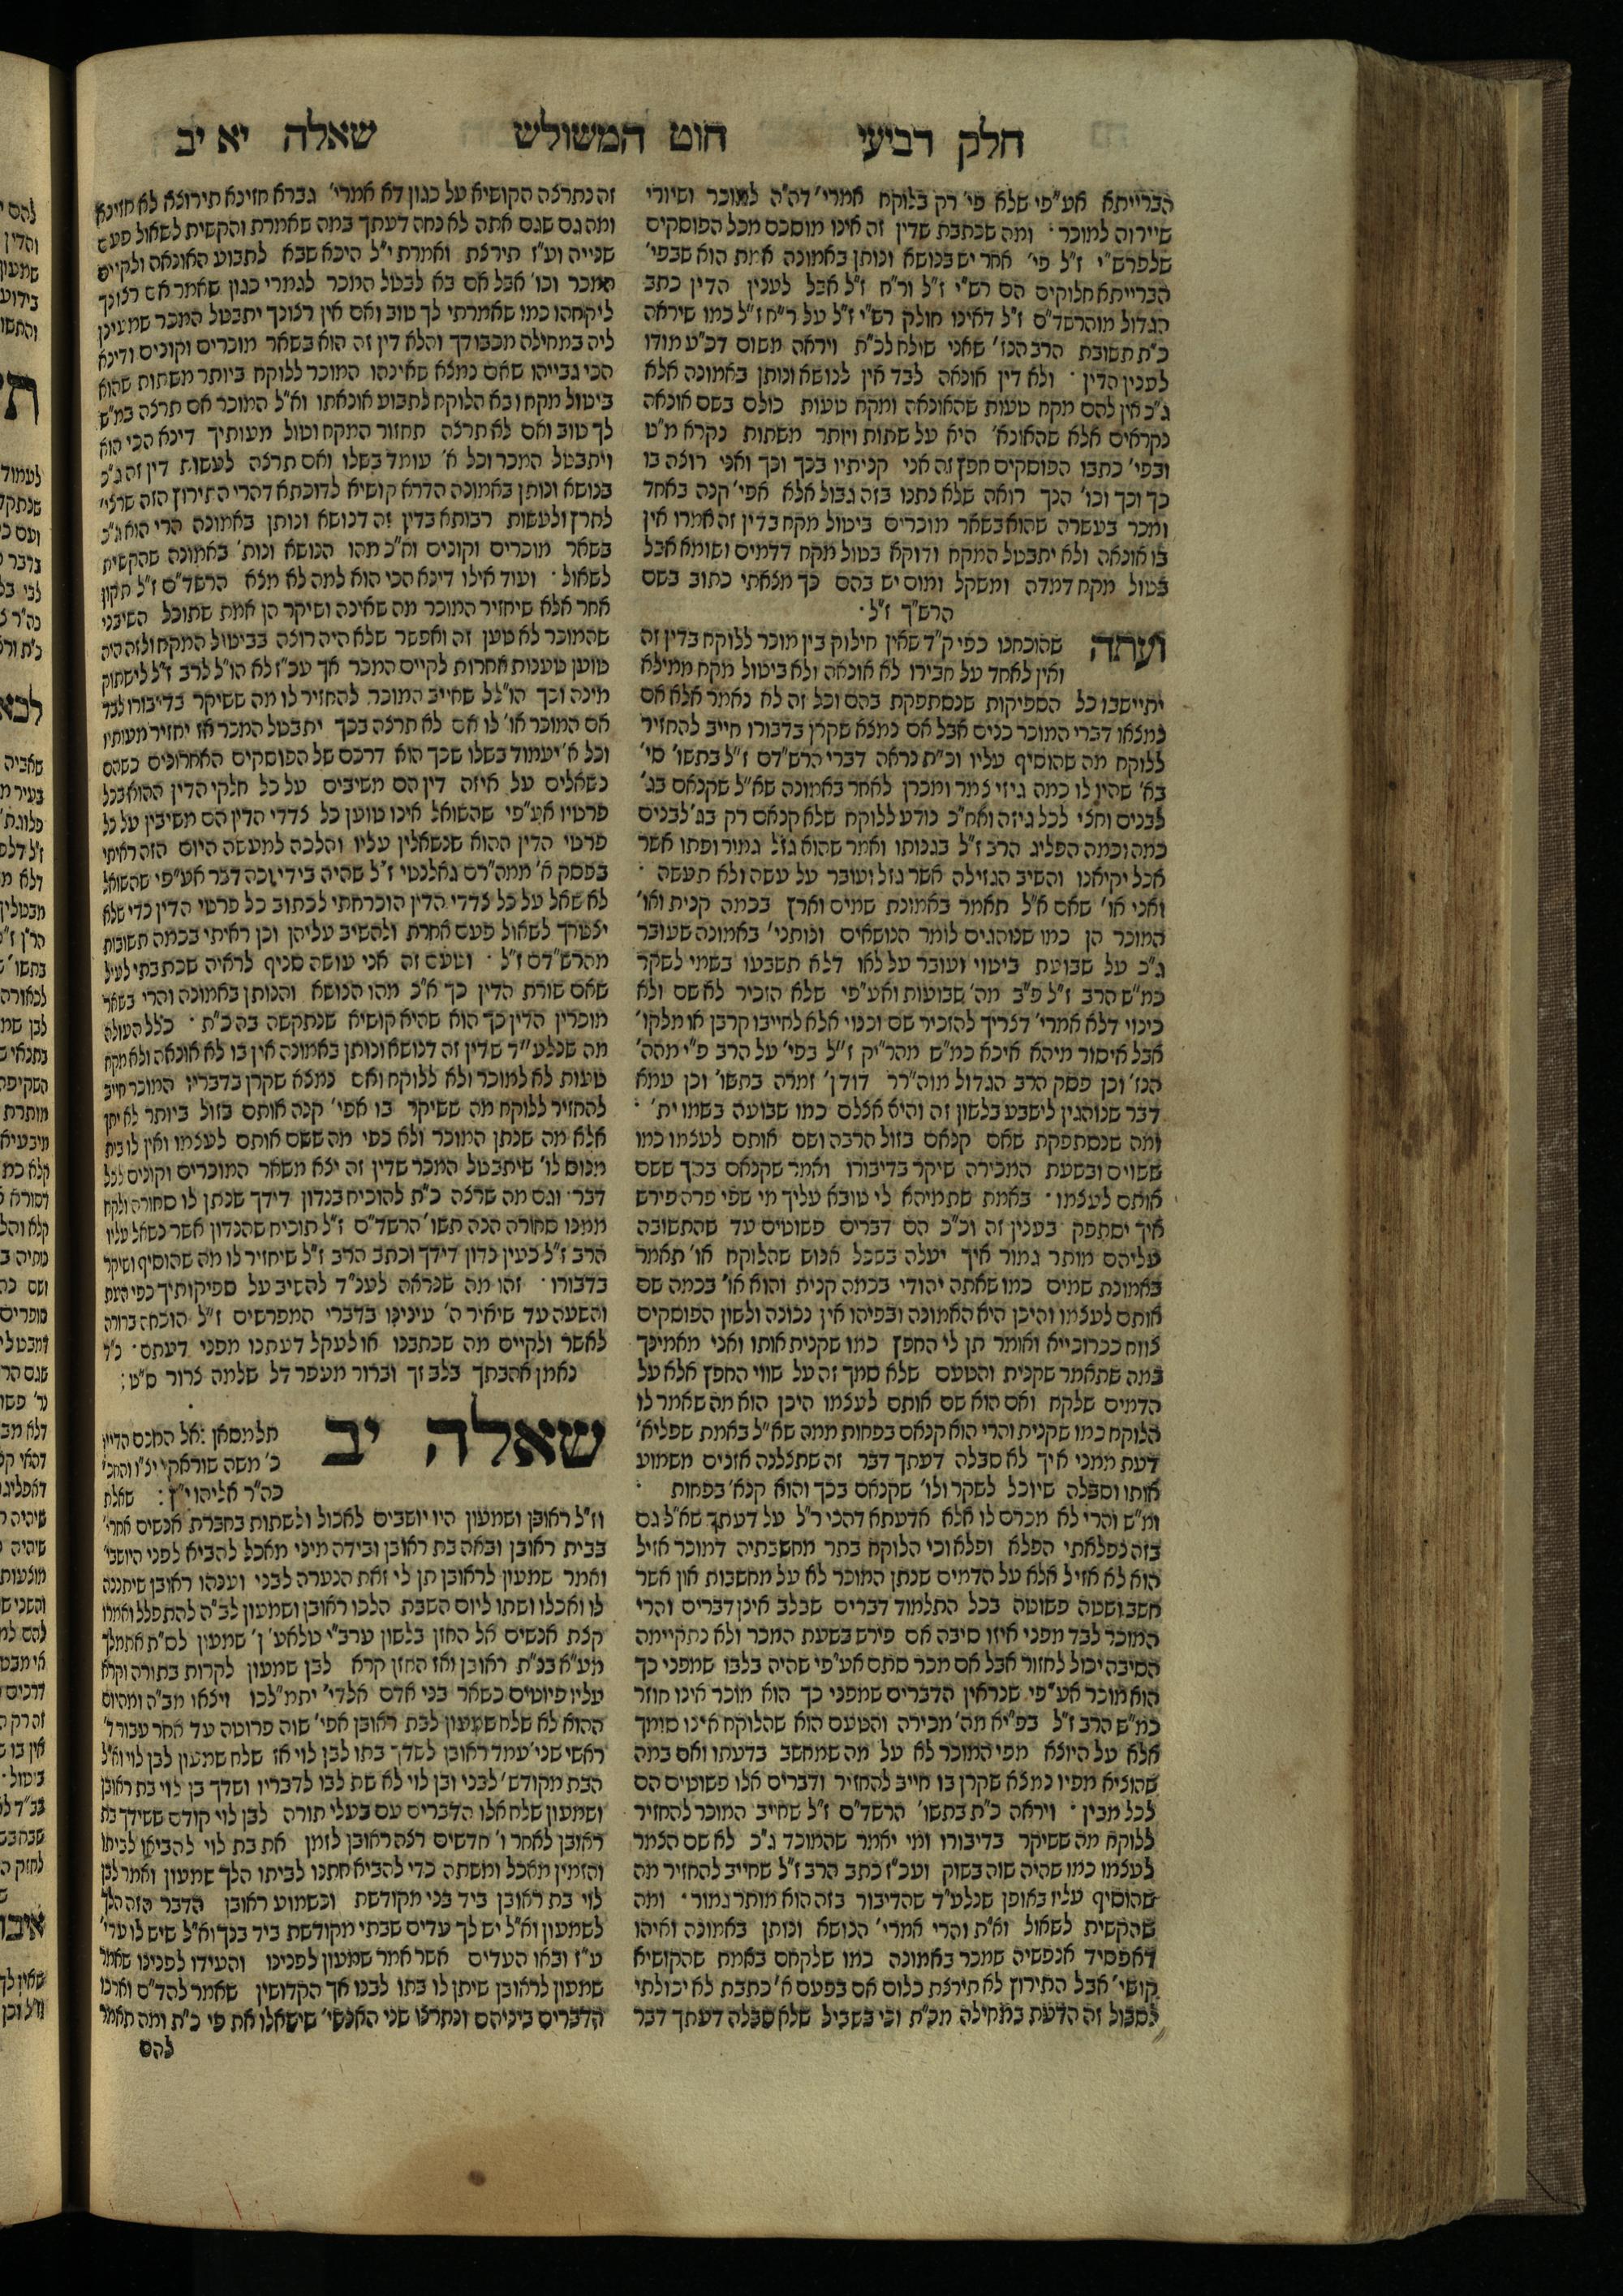 חלק רביעי חוט המשולש שאלה יא יב
הברייתא אע"פי שלא פי' רק בלוקח אמרי' דה"ה למוכר ושיורי
שיירוה למוכר · ומה שכתבת שדין זה אינו מוסכם מכל הפוסקים
שלפרש"י ז"ל פי' אחר יש בנושא ונותן באמונה אמת הוא שבפי'
הברייתא חלוקים הם רש"י ז"ל ור"ח ז"ל אבל לענין הדין כתב
הגדול מוהרשד"ם ז"ל דאינו חולק רש"י ז"ל על ר"ח ז"ל כמו שיראה
כ"ת תשובת הרב הנז' שאני שולח לכ"ת ויראה משום דכ"ע מודו
לענין הדין · ולא דין אונאה לבד אין לנושא ונותן באמונה אלא
ג"כ אין להם מקח טעות שהאונאה ומקח טעות כולם בשם אונאה
נקראים אלא שהאונא' היא על שתות ויותר משתות נקרא מ"ט
ובפי' כתבו הפוסקים חפץ זה אני קניתיו בכך וכך ואני רוצה בו
כך וכך וכו' הנך רואה שלא נתנו בזה גבול אלא אפי' קנה באחד
ומכר בעשרה שהוא בשאר מוכרים ביטול מקח בדין זה אמרו אין
בו אונאה ולא יתבטל המקח ודוקא בטול מקח דדמים ושומא אבל
בטול מקח דמדה ומשקל ומום יש בהם כך מצאתי כתוב בשם
הרש"ך ז"ל ·
ועתה שהוכחנו כפי ק"ד שאין חילוק בין מוכר ללוקח בדין זה
ואין לאחד על חבירו לא אונאה ולא ביטול מקח ממילא
יתיישבו כל הספיקות שנסתפקת בהם וכל זה לא נאמר אלא אם
נמצאו דברי המוכר כנים אבל אם נמצא שקרן בדבורו חייב להחזיר
ללוקח מה שהוסיף עליו וכ"ת נראה דברי הרש"דם ז"ל בתשו' סי'
בא' שהיו לו כמה גיזי צמר ומכרן לאחר באמונה שא"ל שקנאם בג'
לבנים וחצי לכל גיזה ואח"כ נודע ללוקח שלא קנאם רק בג' לבנים
כמה וכמה הפליג הרב ז"ל בגנותו ואמר שהוא גזל גמור ופתו אשר
אכל יקיאנו והשיב הגזילה אשר גזל ועובר על עשה ולא תעשה ·
ואני או' שאם א"ל תאמר באמונת שמים וארץ בכמה קנית ואו'
המוכר הן כמו שנוהגים לומר הנושאים ונותני' באמונה שעובר
ג"כ על שבועת ביטוי ועובר על לאו דלא תשבעו בשמי לשקר
כמ"ש הרב ז"ל פ"ב מה' שבועות ואע"פי שלא הזכיר לא שם ולא
כינוי דלא אמרי' דצריך להזכיר שם וכנוי אלא לחייבו קרבן או מלקו'
אבל איסור מיהא איכא כמ"ש מהר"יק ז"ל בפי' על הרב פ"י מהה'
הנז' וכן פסק הרב הגדול מוה"רר דודן' זמרה בתשו' וכן עמא
דבר שנוהגין לישבע בלשון זה והיא אצלם כמו שבועה בשמו ית' ·
ומה שנסתפקת שאם קנאם בזול הרבה ושם אותם לעצמו כמו
ששוים ובשעת המכירה שיקר בדיבורו ואמר שקנאם בכך ששם
אותם לעצמו · באמת שתמיהא לי טובא עליך מי שפי פרה פירש
איך יסתפק בענין זה וכ"כ הם דברים פשוטים עד שהתשובה
עליהם מותר גמור איך יעלה בשכל אנוש שהלוקח או' תאמר
באמונת שמים כמו שאתה יהודי בכמה קנית והוא או' בכמה שם
אותם לעצמו והיכן היא האמונה ובפיהו אין נכונה ולשון הפוסקים
צווח ככרוכייא ואומר תן לי החפץ כמו שקנית אותו ואני מאמינך
במה שתאמר שקנית והטעם שלא סמך זה על שווי החפץ אלא על
הדמים שלקח ואם הוא שם אותם לעצמו היכן הוא מה שאמר לו
הלוקח כמו שקנית והרי הוא קנאם בפחות ממה שא"ל באמת שפליא'
דעת ממני איך לא סבלה דעתך דבר זה שתצלנה אזנים משמוע
אותו וסבלה שיוכל לשקר ולו' שקנאם בכך והוא קנא' בפחות ·
ומ"ש והרי לא מכרם לו אלא אדעתא דהכי ר"ל על דעתך שא"ל גם
בזה נפלאתי הפלא ופלא וכי הלוקח בתר מחשבתיה דמוכר אזיל
הוא לא אזיל אלא על הדמים שנתן המוכר לא על מחשבות און אשר
חשב ושטה פשוטה בכל התלמוד דברים שבלב אינן דברים והרי
המוכר לבד מפני איזו סיבה אם פירש בשעת המכר ולא נתקיימה
הסיבה יכול לחזור אבל אם מכר סתם אע"פי שהיה בלבו שמפני כך
הוא מוכר אע"פי שנראין הדברים שמפני כך הוא מוכר אינו חוזר
כמ"ש הרב ז"ל בפ"יא מה' מכירה והטעם הוא שהלוקח אינו סומך
אלא על היוצא מפי המוכר לא על מה שמחשב בדעתו ואם במה
שהוציא מפיו נמצא שקרן בו חייב להחזיר ודברים אלו פשוטים הם
לכל מבין · ויראה כ"ת בתשו' הרשד"ם ז"ל שחייב המוכר להחזיר
ללוקח מה ששיקר בדיבורו ומי יאמר שהמוכר ג"כ לא שם הצמר
לעצמו כמו שהיה שוה בשוק ועכ"ז כתב הרב ז"ל שחייב להחזיר מה
שהוסיף עליו באופן שנלע"ד שהדיבור בזה הוא מותר גמור · ומה
שהקשית לשאול וא"ת והרי אמרי' הנושא ונותן באמונה ואיהו
דאפסיד אנפשיה שמכר באמונה כמו שלקחם באמת שהקושיא
קושי' אבל התירוץ לא תירצת כלום אם בפעם א' כתבת לא יכולתי
לסבול זה הדעת במחילה מכ"ת וכי בשביל שלא סבלה דעתך דבר
זה נתרצה הקושיא על כגון דא אמרי' גברא חזינא תירוצא לא חזינא
ומה גם שגם אתה לא נחה דעתך במה שאמרת והקשית לשאול פעם
שנייה וע"ז תירצת ואמרת י"ל היכא שבא לתבוע האונאה ולקיים
המכר וכו' אבל אם בא לבטל המכר לגמרי כגון שאמר אם רצונך
ליקחהו כמו שאמרתי לך טוב ואם אין רצונך יתבטל המכר שמעינן
ליה במחילה מכבודך והלא דין זה הוא בשאר מוכרים וקונים ודינא
הכי גבייהו שאם נמצא שאינהו המוכר ללוקח ביותר משתות שהוא
ביטול מקח ובא הלוקח לתבוע אונאתו וא"ל המוכר אם תרצה במ"ש
לך טוב ואם לא תרצה תחזור המקח וטול מעותיך דינא הכי הוא
ויתבטל המכר וכל א' עומד בשלו ואם תרצה לעשות דין זה ג"כ
בנושא ונותן באמונה הדרא קושיא לדוכתא דהרי התירוץ הזה שרצי'
לתרץ ולעשות רבותא בדין זה דנושא ונותן באמונה הרי הוא ג"כ
בשאר מוכרים וקונים וא"כ מהו הנושא ונות' באמונה שהקשית
לשאול · ועוד אילו דינא הכי הוא למה לא מצא הרשד"ם ז"ל תקון
אחר אלא שיחזיר המוכר מה שאינה ושיקר הן אמת שתוכל השיבני
שהמוכר לא טען זה ואפשר שלא היה רוצה בביטול המקח ולזה היה
טוען טענות אחרות לקיים המכר אך עכ"ז לא הו"ל לרב ז"ל לישתוק
מינה וכך הו"ל שחייב המוכר להחזיר לו מה ששיקר בדיבורו לבד
אם המוכר או' לו אם לא תרצה בכך יתבטל המכר אז יחזיר מעותיו
וכל א' יעמוד בשלו שכך הוא דרכם של הפוסקים האחרונים כשהם
נשאלים על איזה דין הם משיבים על כל חלקי הדין ההוא בכל
פרטיו אע"פי שהשואל אינו טוען כל צדדי הדין הם משיבין על כל
פרטי הדין ההוא שנשאלין עליו והלכה למעשה היום הזה ראיתי
בפסק א' ממה"רם גאלנטי ז"ל שהיה בידי וכה דבר אע"פי שהשואל
לא שאל על כל צדדי הדין הוכרחתי לכתוב כל פרטי הדין כדי שלא
יצטרך לשאול פעם אחרת ולהשיב עליהן וכן ראיתי בכמה תשובות
מהרש"דם ז"ל · וטעם זה אני עושה סניף לראיה שכתבתי לעיל
שאם שורת הדין כך א"כ מהו הנושא והנותן באמונה והרי בשאר
מוכרין הדין כך הוא שהיא קושיא שנתקשה בה כ"ת · כלל העולה
מה שנלע"ד שדין זה דנושא ונותן באמונה אין בו לא אונאה ולא מקח
טעות לא למוכר ולא ללוקח ואם נמצא שקרן בדבריו המוכר חייב
להחזיר ללוקח מה ששיקר בו אפי' קנה אותם בזול ביותר לא יתן
אלא מה שנתן המוכר ולא כפי מה ששם אותם לעצמו ואין לו בית
מנוס לו' שיתבטל המכר שדין זה יצא משאר המוכרים וקונים לכל
דבר · וגם מה שרצה כ"ת להוכיח בנדון דידך שנתן לו סחורה ולקח
ממנו סחורה הנה תשו' הרשד"ם ז"ל תוכיח שהנדון אשר נשאל עליו
הרב ז"ל כעין נדון דידך וכתב הרב ז"ל שיחזיר לו מה שהוסיף ושיקר
בדבורו · זהו מה שנראה לענ"ד להשיב על ספיקותיך כפי העת
והשעה עד שיאיר ה' עינינו בדברי המפרשים ז"ל הוכחה ברורה
לאשר ולקיים מה שכתבנו או לעקל דעתנו מפני דעתם · נ"ד
נאמן אהבתך בלב זך וברור מעפר דל שלמה צרור ס"ט :
שאלה יב תלמסאן : אל החכם הדיין
כ' משה שוראקי יצ"ו והחכ'
כה"ר אליהו י"ץ : שאלת
וז"ל ראובן ושמעון היו יושבים לאכול ולשתות בחברת אנשים אחרי'
בבית ראובן ובאה בת ראובן ובידה מיני מאכל להביא לפני היושבי'
ואמר שמעון לראובן תן לי זאת הנערה לבני וענהו ראובן שיתננה
לו ואכלו ושתו ליום השבת הלכו ראובן ושמעון לב"ה להתפלל ואמרו
קצת אנשים אל החזן בלשון ערב"י טלאע' ן' שמעון לס"ת אתמלך
מע"א בנ"ת ראובן ואז החזן קרא לבן שמעון לקרות בתורה וקרא
עליו פיוטים כשאר בני אדם אלדי' יתמ"לכו ויצאו מב"ה ומהיום
ההוא לא שלח שמעון לבת ראובן אפי' שוה פרוטה עד אחר עבור ד'
ראשי שני' עמד ראובן לשדך בתו לבן לוי אז שלח שמעון לבן לוי וא"ל
הבת מקודש' לבני ובן לוי לא שת לבו לדבריו ושדך בן לוי בת ראובן
ושמעון שלח אלו הדברים עם בעלי תורה לבן לוי קודם ששידך בת
ראובן לאחר ו' חדשים רצה ראובן לזמן את בת לוי להביאו לביתו
והזמין מאכל ומשתה כדי להביא חתנו לביתו הלך שמעון ואמר לבן
לוי בת ראובן ביד בני מקודשת וכשמוע ראובן הדבר הזה הלך
לשמעון וא"ל יש לך עדים שבתי מקודשת ביד בנך וא"ל שיש לו עדי'
ע"ז ובאו העדים אשר אמר שמעון לפנינו והעידו לפנינו שאמר
שמעון לראובן שיתן לו בתו לבנו אך הקדושין שאמר להד"ם וארכו
הדברים ביניהם ונתרצו שני האנשי' שישאלו את פי כ"ת ומה תאמר
להם